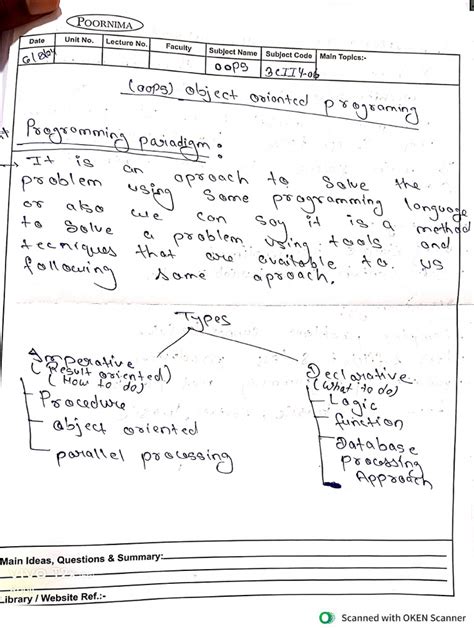 POORNIMA
Date Unit No. Lecture No. Faculty Subject Name Subject Code Main Topics:-
OOPS 3CII4-06
(OOPS) object oriented programing
Programming paradigm:
→ It is an aproach to solve the
problem using some programming language
or also we can say it is a method
to solve a problem using tools and
tecniques that are available to us
following some aproach.
Types
Imperative
(Result oriented)
(How to do)
Procedure
object oriented
parallel processing
Declarative
(What to do)
Logic
function
Database
processing
Approach
Main Ideas, Questions & Summary:
Library / Website Ref.:-
Scanned with OKEN Scanner